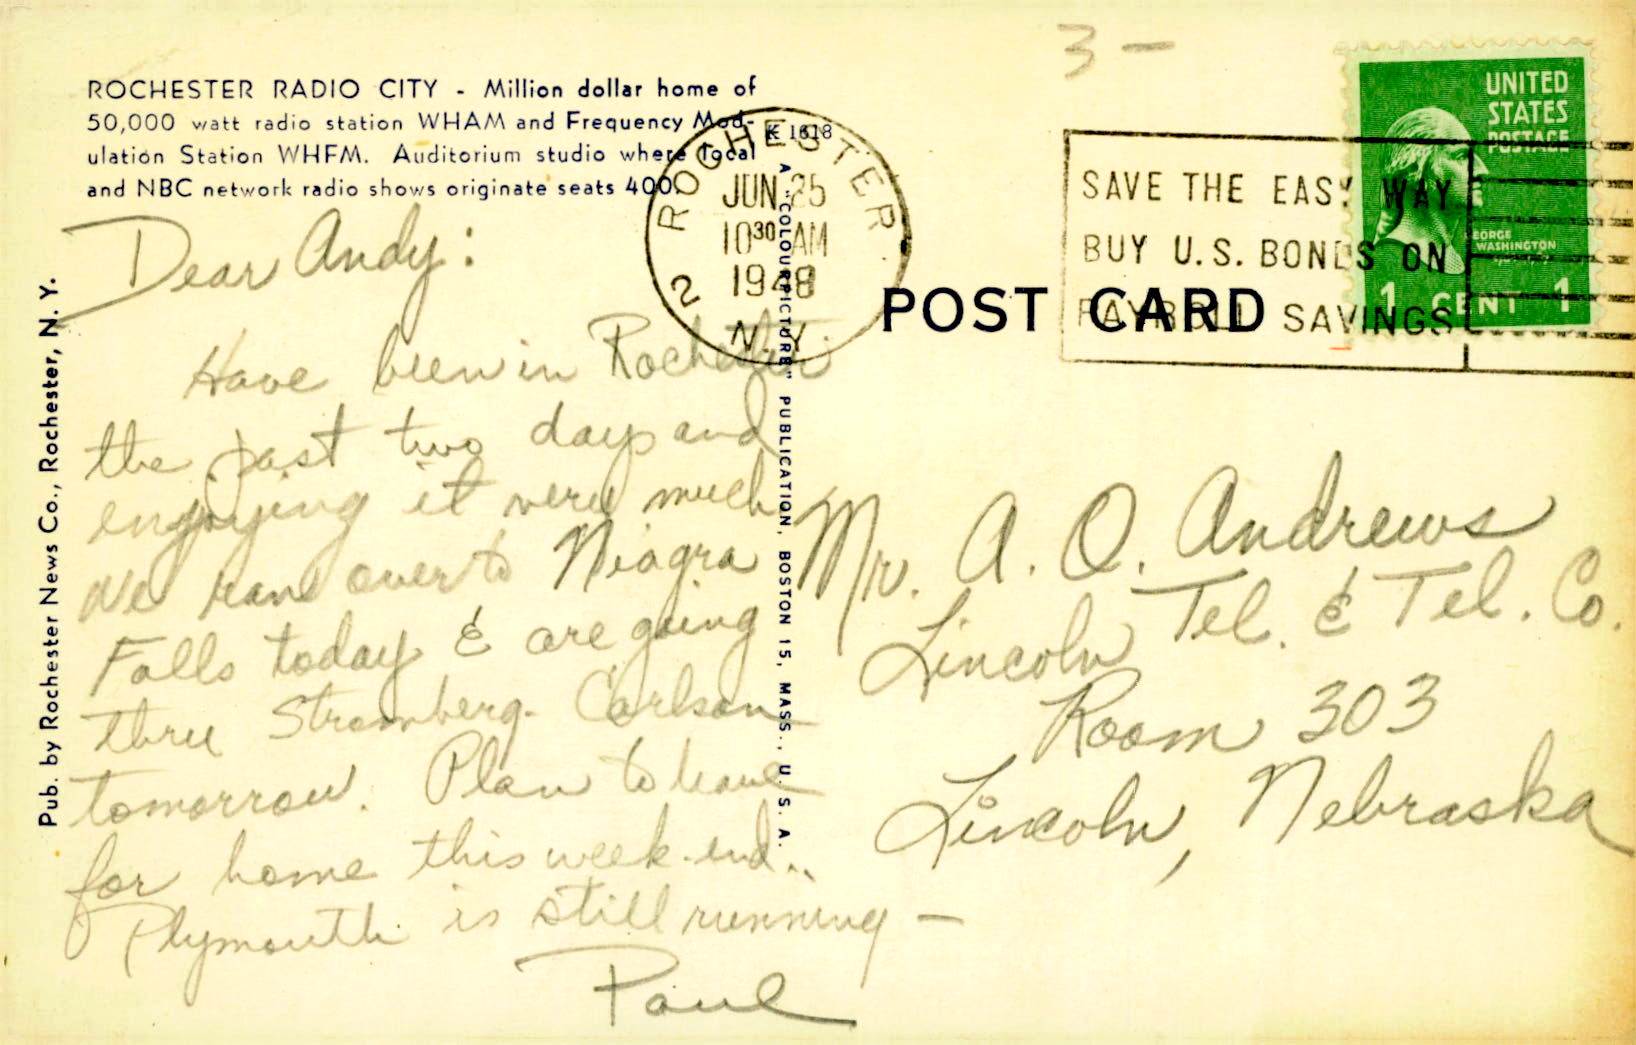 3 —
ROCHESTER RADIO CITY - Million dollar home of
50,000 watt radio station WHAM and Frequency Mod-
ulation Station WHFM. Auditorium studio where local
and NBC network radio shows originate seats 400.
K 1618
ROCHESTER 2 N.Y.
JUN 25
10 30 AM
1948
SAVE THE EASY WAY
BUY U.S. BONDS ON
PAYROLL SAVINGS
UNITED
STATES
POSTAGE
GEORGE
WASHINGTON
1 CENT 1
POST CARD
Dear Andy:
Have been in Rochester
the past two days and
enjoying it very much
We ran over to Niagra
Falls today & are going
thru Stromberg-Carlson
tomorrow. Plan to leave
for home this week-end..
Plymouth is still running —
Paul
Mr. A. O. Andrews
Lincoln Tel. & Tel. Co.
Room 303
Lincoln, Nebraska
Pub. by Rochester News Co., Rochester, N. Y.
A "COLOURPICTURE" PUBLICATION, BOSTON 15, MASS., U. S. A.